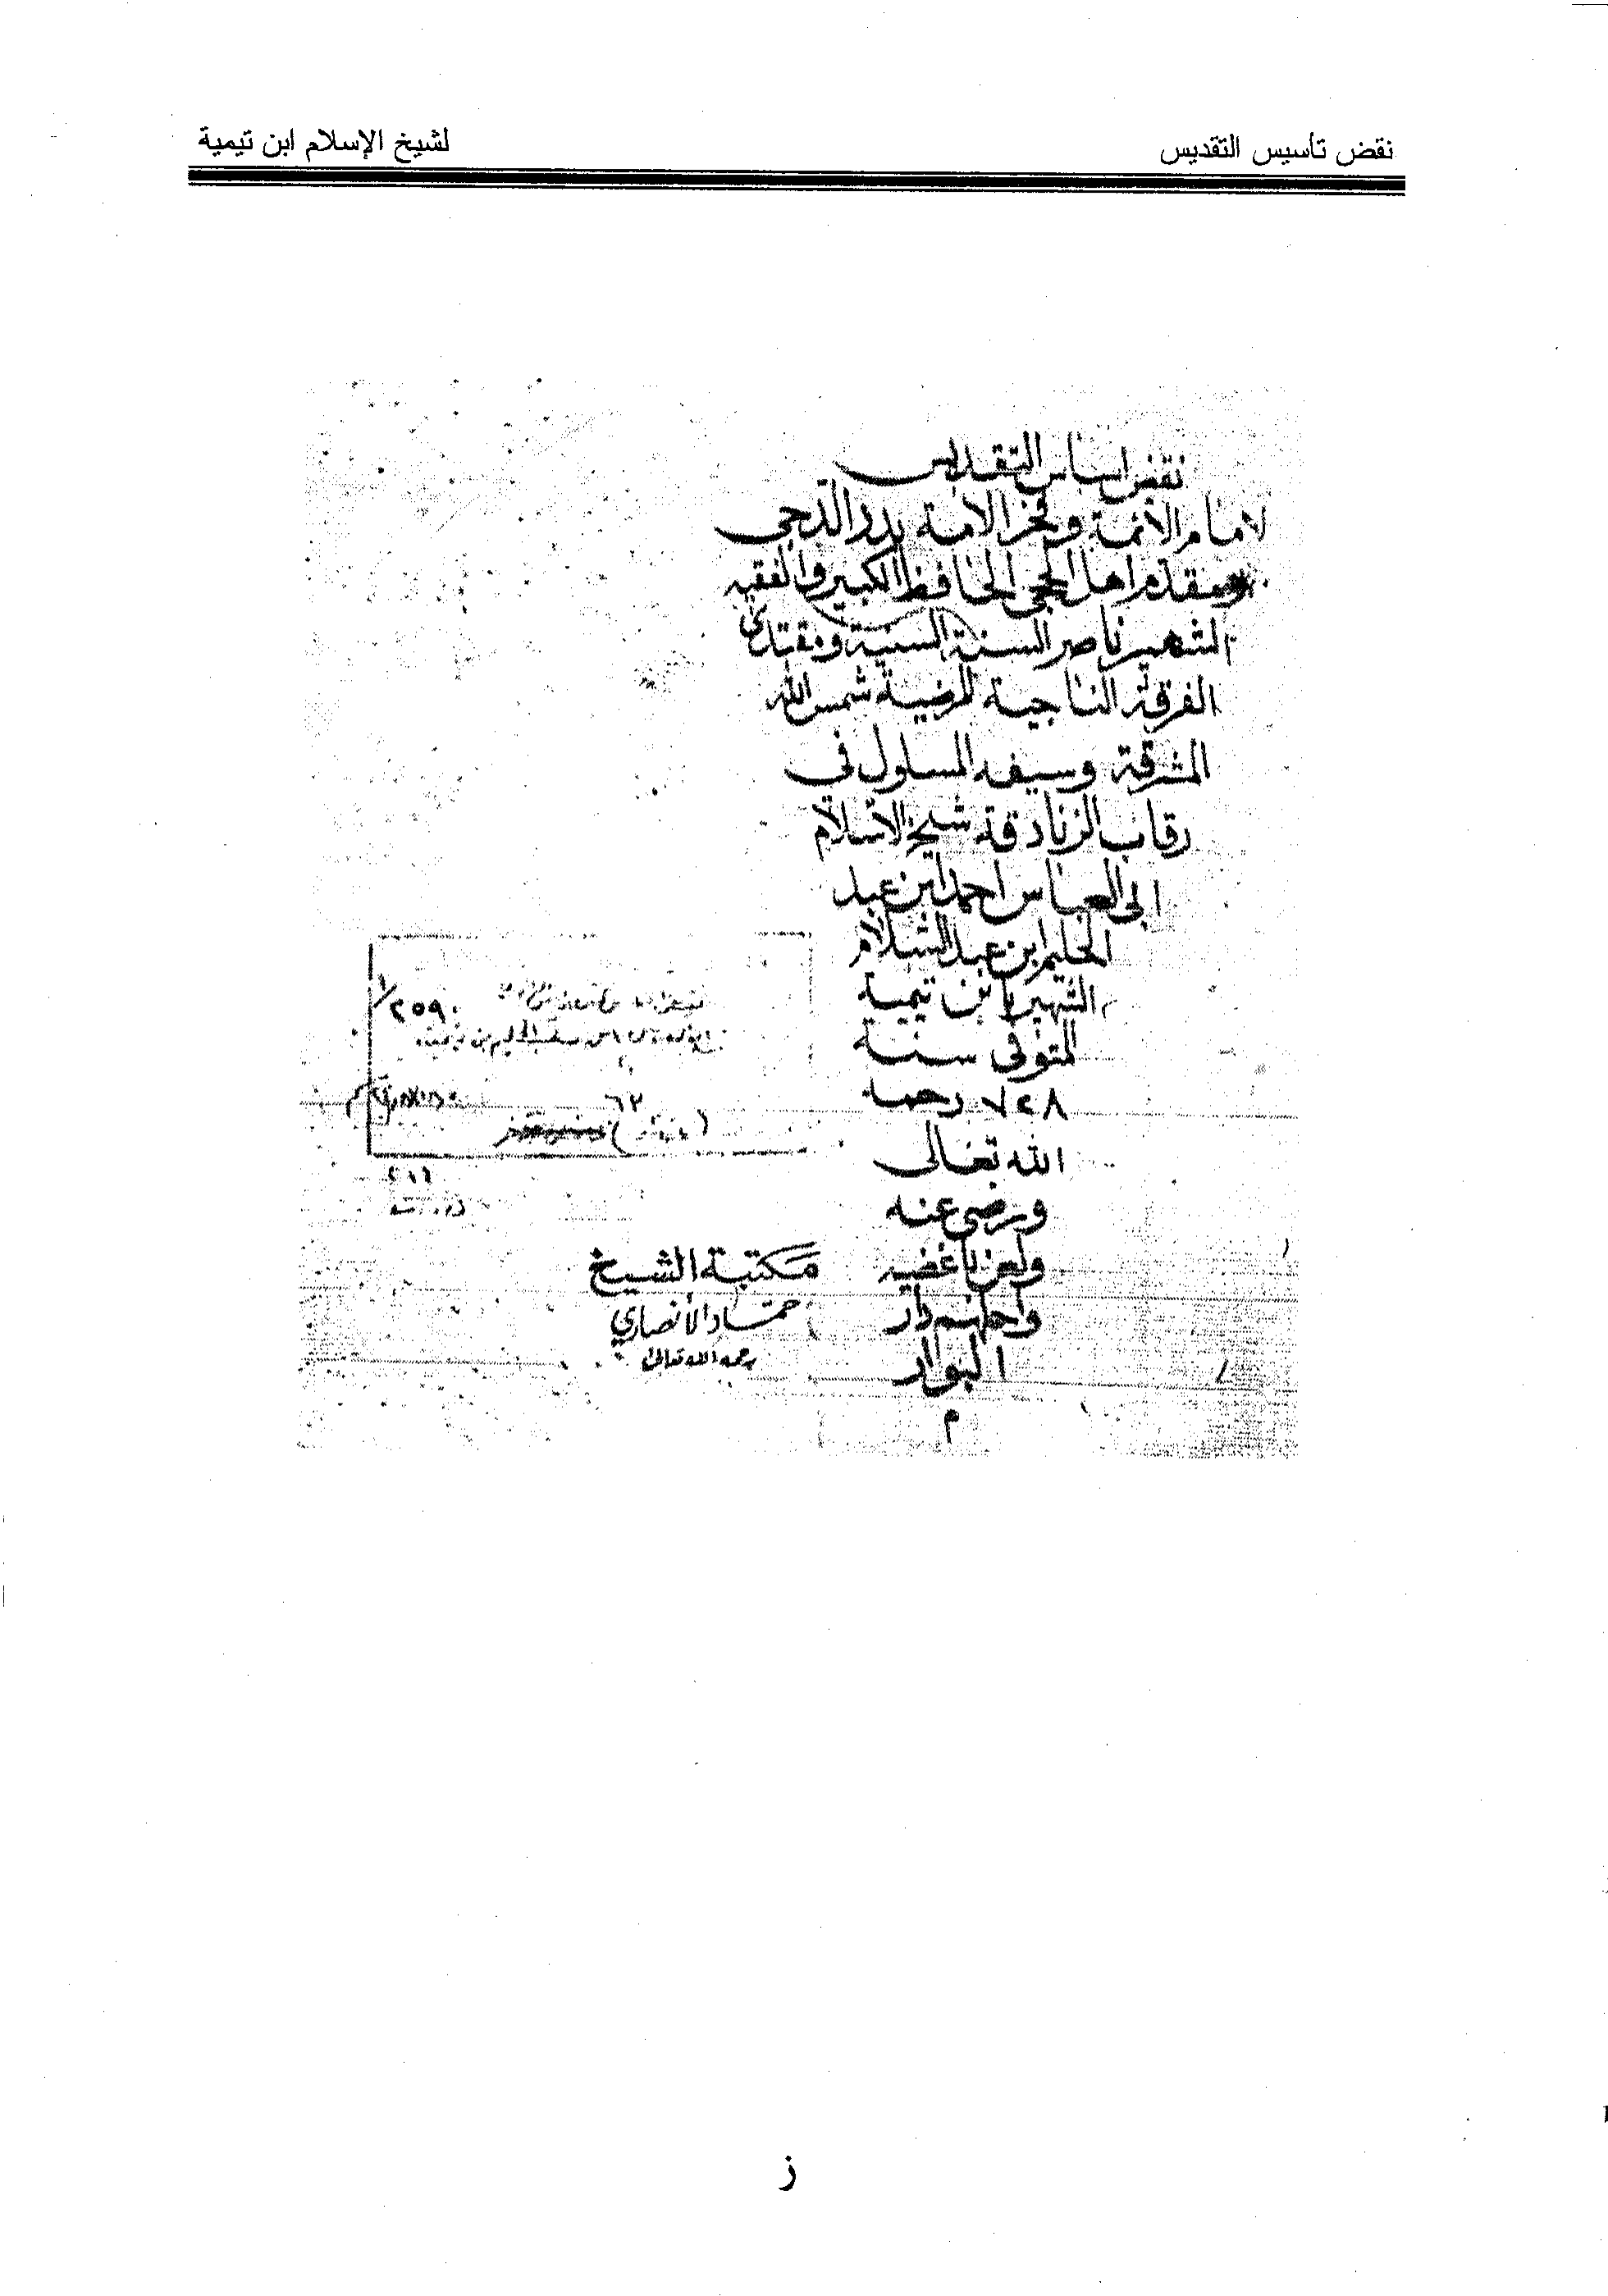 نقض تأسيس التقديس
لشيخ الإسلام ابن تيمية
نقض اساس التقديس
لامام الائمة وفخر الامة بدر الدجى
ومقدم اهل الحجى الحافظ الكبير والفقيه
الشهير ناصر السنة السنية ومقتدى
الفرقة الناجية المرضية شمس الله
المشرقة وسيفه المسلول في
رقاب الزنادقة شيخ الاسلام
ابي العباس احمد ابن عبد
الحليم ابن عبد السلام
الشهير بابن تيمية
المتوفى سنة
٧٢٨ رحمه
الله تعالى
ورضي عنه
ولعن باغضيه
واحلهم دار
البوار
م
٢٥٩٠
٦٢
مكتبة الشيخ
حماد الأنصاري
رحمه الله تعالى
ز